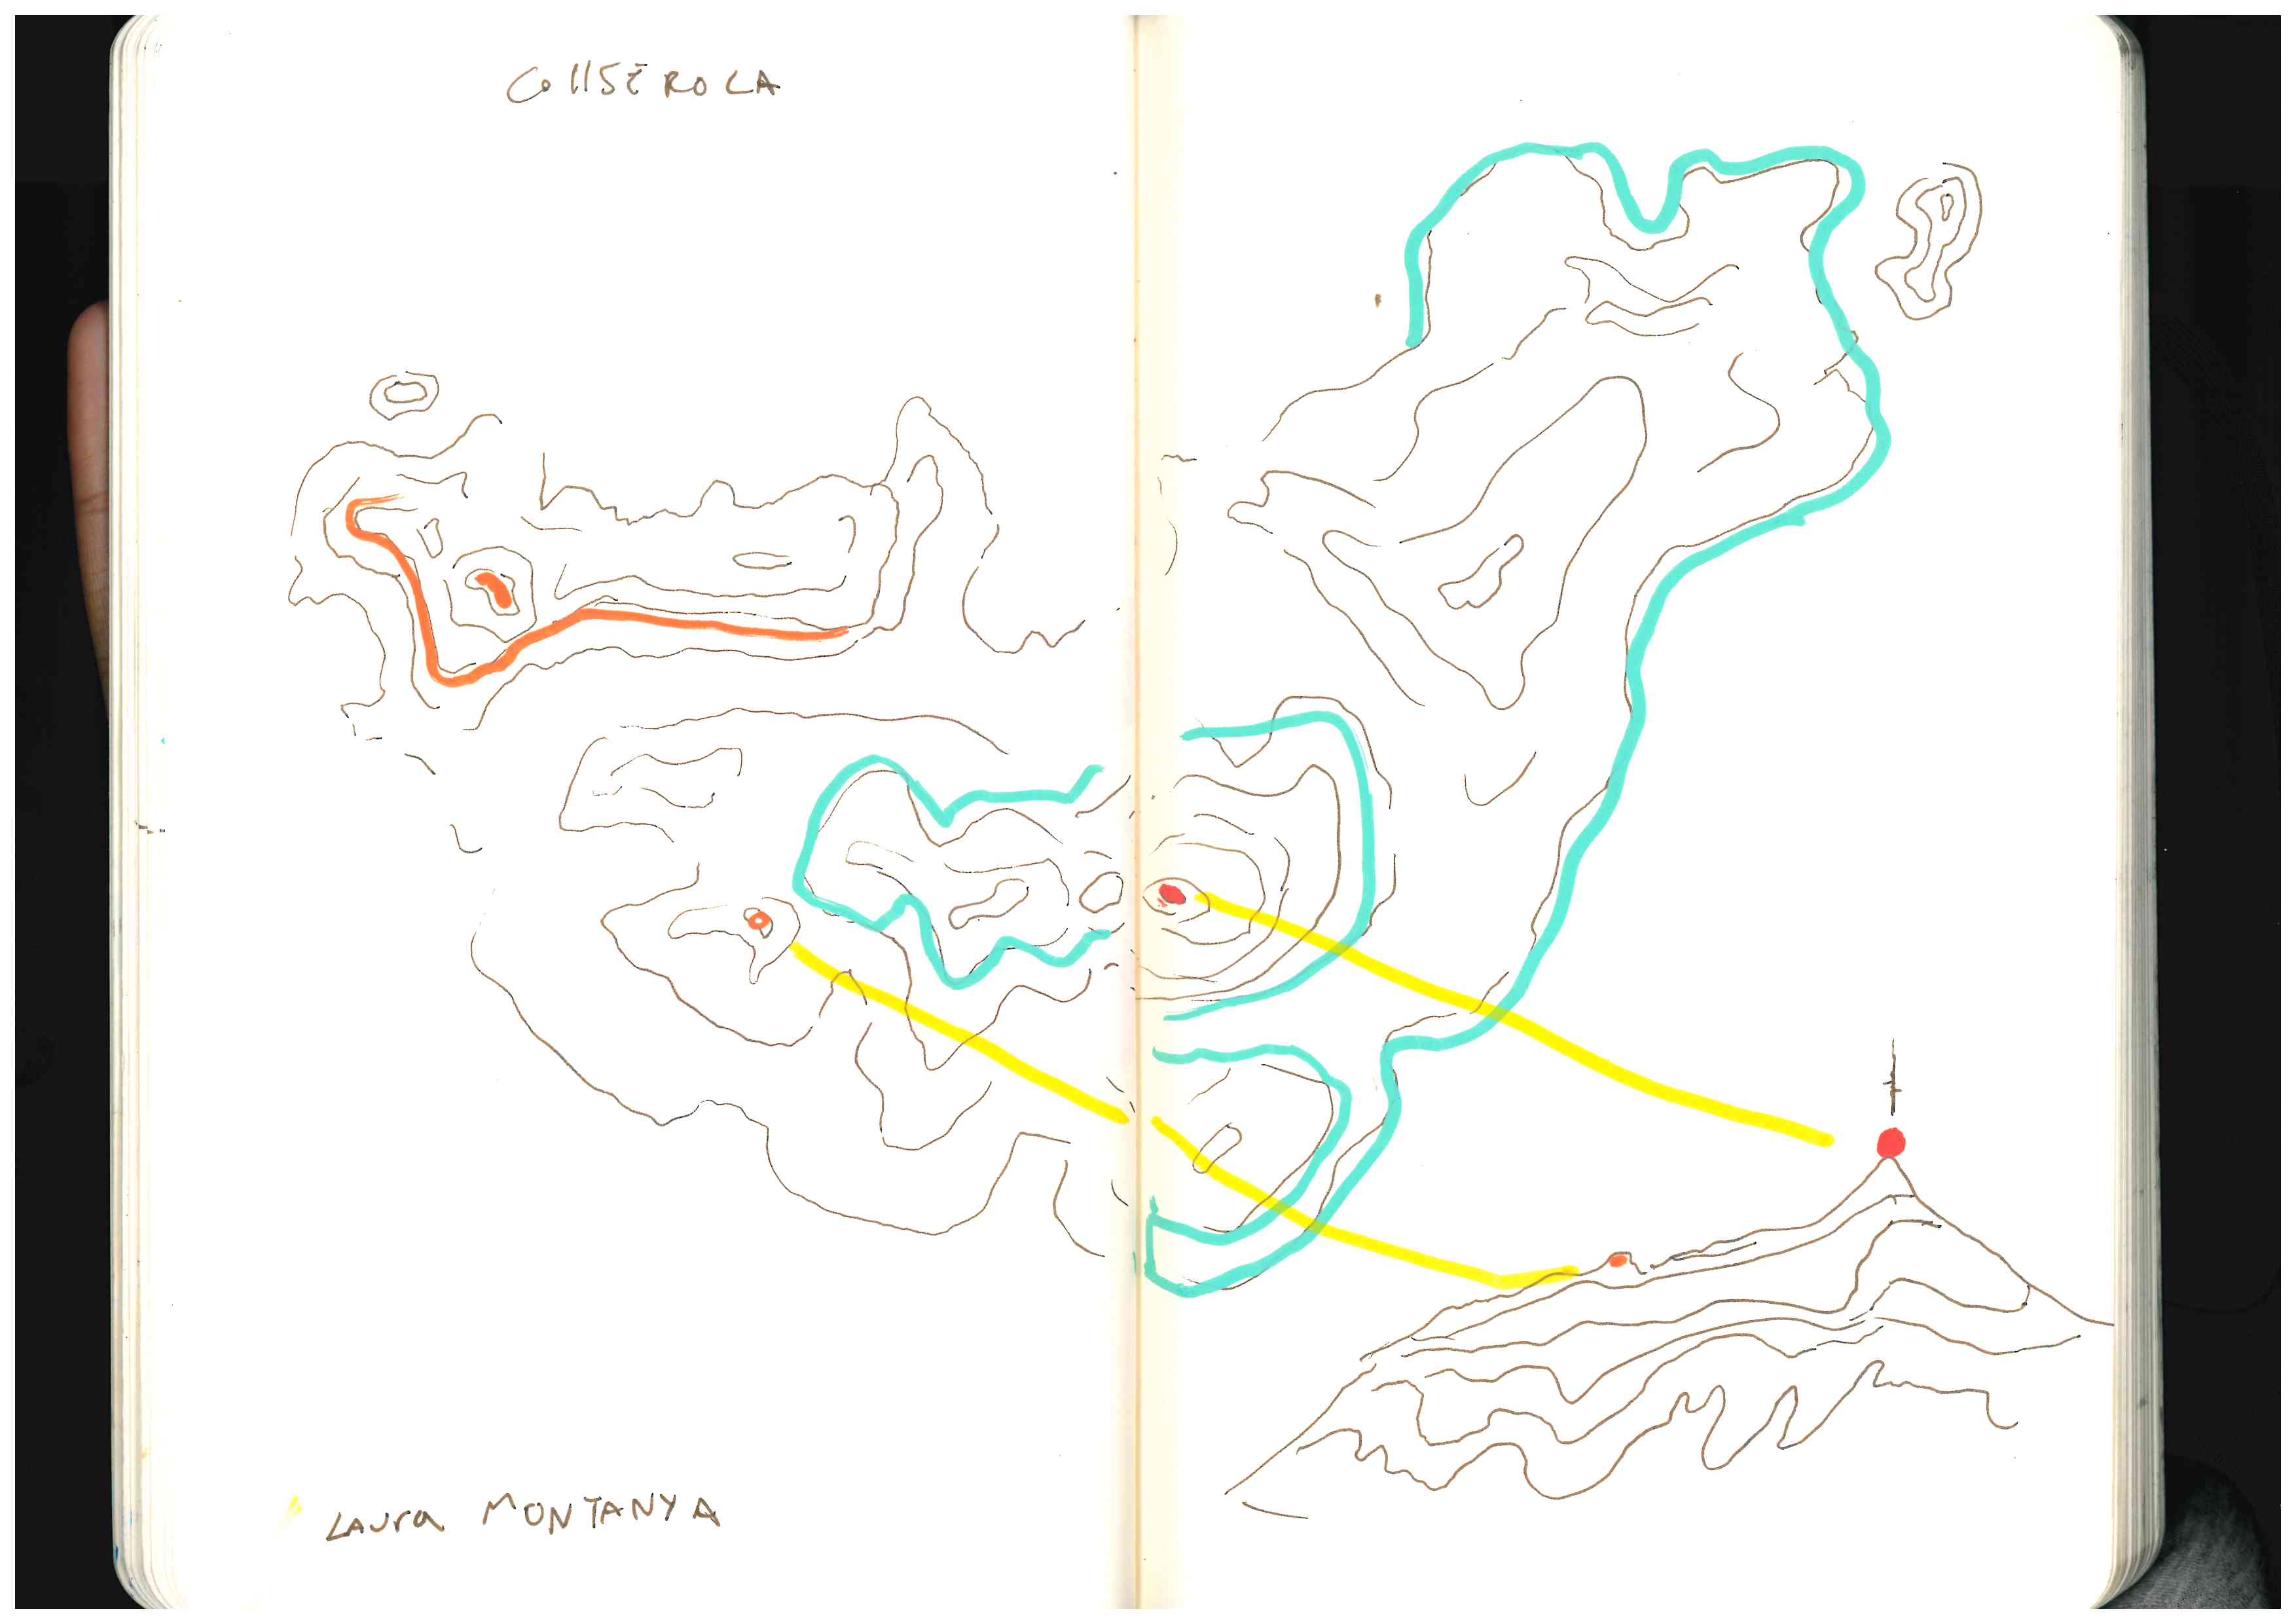 CollSEROLA
LAura MONTANYA